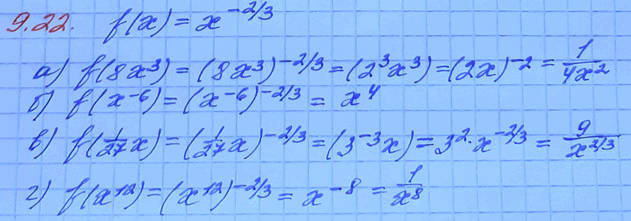 9.22. f(x) = x^{-2/3}
а) f(8x³) = (8x³)^{-2/3} = (2³x³) = (2x)^{-2} = \frac{1}{4x²}
б) f(x^{-6}) = (x^{-6})^{-2/3} = x⁴
в) f(\frac{1}{27}x) = (\frac{1}{27}x)^{-2/3} = (3^{-3}x) = 3²·x^{-2/3} = \frac{9}{x^{2/3}}
г) f(x^{12}) = (x^{12})^{-2/3} = x^{-8} = \frac{1}{x^8}